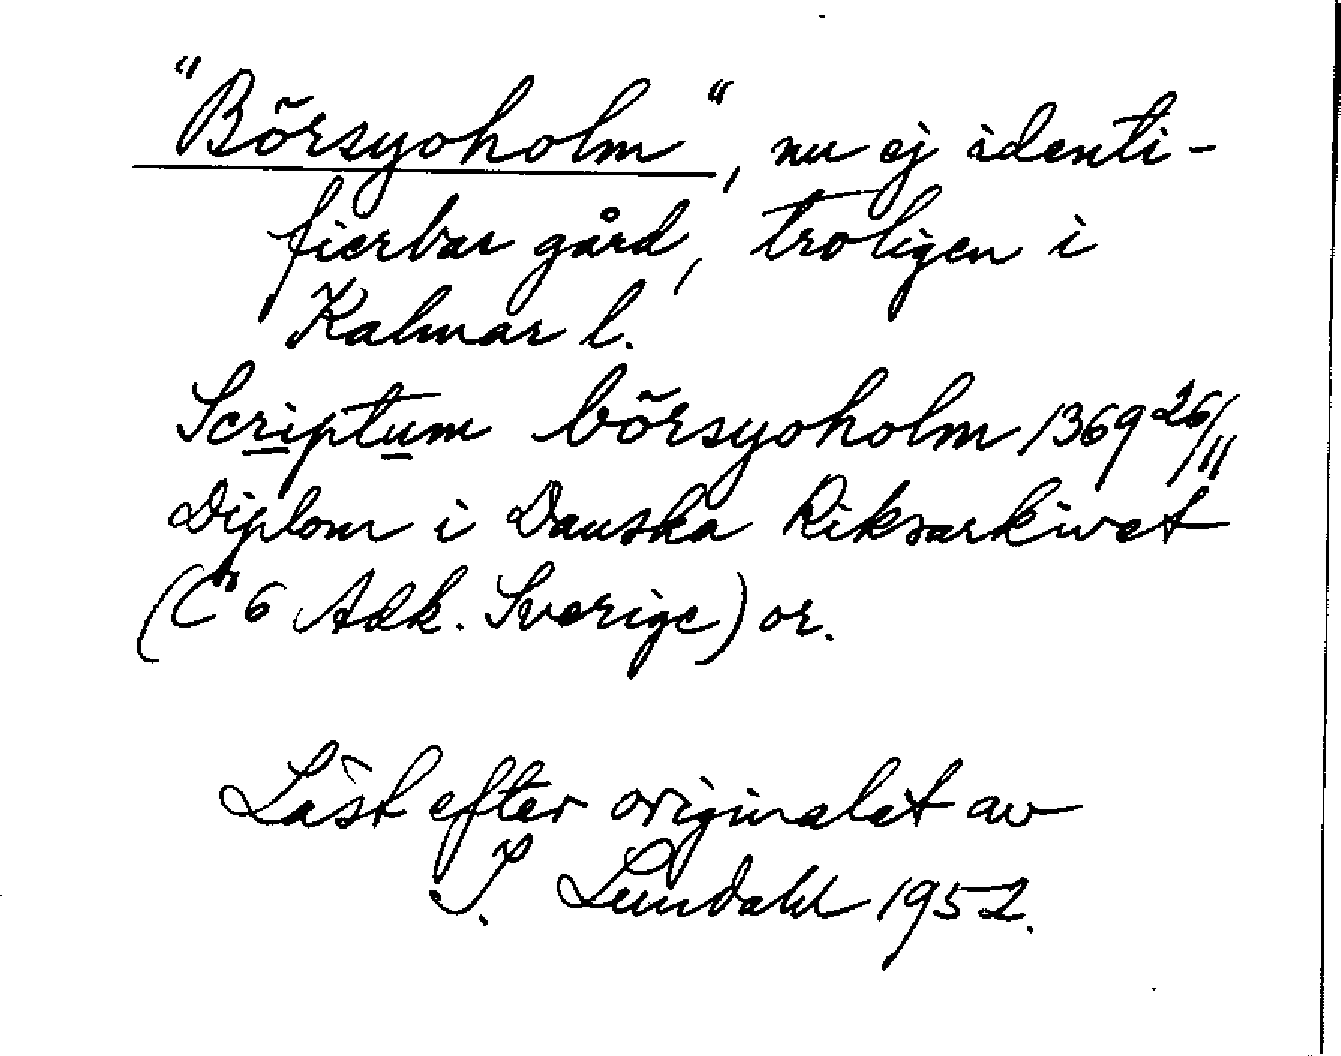 "Börsyoholm", nu ej identi-
fierbar gård, troligen i
Kalmar l.
Scriptum börsyoholm 1369 26/11
Diplom i Danska Riksarkivet
(C" 6 Adk. Sverige) or.
Läst efter originalet av
I. Lundahl 1952.